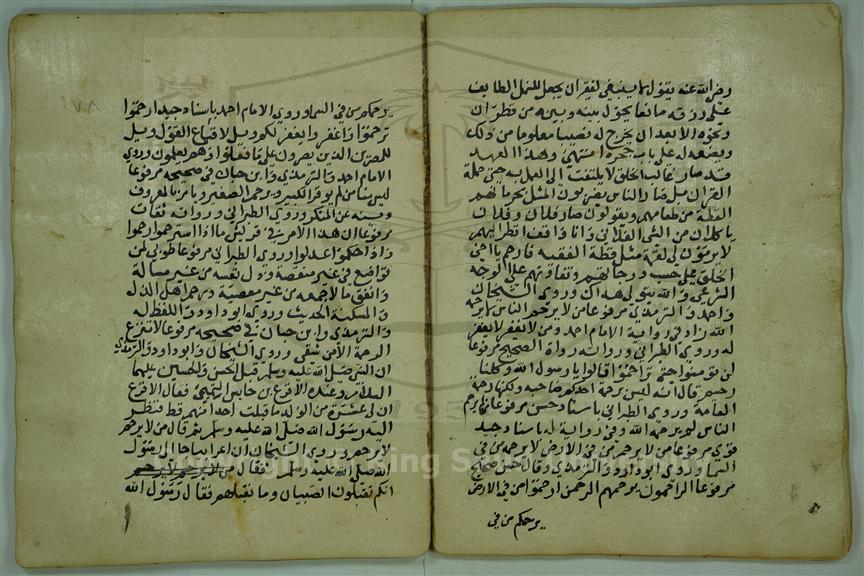 رضي الله عنه يقول ما ينبغي لفقير ان يجعل للنمل الطايف
على رزقه مانعا يحول بينه وبينه من قطران
ونحوه الا بعد ان يخرج له نصيبا معلوما من ذلك
ويضعه له على باب جحره انتهى وهذا العهد
قد صار غالب الخلق لا يلتفت الى العمل به حتى حملة
القران بل صار الناس يضربون المثل بحرمانهم
القطة من طعامهم ويقولون صار فلان وفلان
ياكلان من الشي الفلاني وانا واقف انظر اليهم
لا يرموني لي لقمة مثل قطة الفقيه فارحم يا اخي
الخلق على حسب درجاتهم وتفاوتهم على الوجه
الشرعي والله يتولى هداك وروى الشيخان
واحمد والترمذي مرفوعا من لا يرحم الناس لا يرحمه
الله زاد في رواية الامام احمد ومن لا يغفر لا يغفر
له وروى الطبراني ورواته رواة الصحيح مرفوعا
لن تومنوا حتى تراحموا قالوا يا رسول الله وكلنا
رحيم قال انه ليس برحمة احدكم صاحبه ولكنها رحمة
العامة وروى الطبراني باسناد حسن مرفوعا من لم يرحم
الناس لم يرحمه الله وفي رواية له باسناد جيد
قوي مرفوعا من لا يرحم من في الارض لا يرحمه من في
السما وروى ابو داود والترمذي وقال حسن صحيح
مرفوعا الراحمون يرحمهم الرحمن ارحموا من في الارض
يرحمكم من في
يرحمكم من في السما وروى الامام احمد باسناد جيد ارحموا
ترحموا واغفروا يغفر لكم ويل لاقماع القول ويل
للمصرين الذين يصرون على ما فعلوا وهم يعلمون وروى
الامام احمد والترمذي وابن حبان في صحيحه مرفوعا
ليس منا من لم يوقر الكبير ويرحم الصغير ويامر بالمعروف
وينه عن المنكر وروى الطبراني ورواته ثقات
مرفوعا ان هذا الامر في قريش ما اذا استرحموا رحموا
واذا حكموا عدلوا وروى الطبراني مرفوعا طوبى لمن
تواضع في غير منقصة وذل نفسه من غير مسالة
وانفق مالا جمعه من غير معصية ورحم اهل الذل
والمسكنة الحديث وروى ابو داود واللفظ له
والترمذي وابن حبان في صحيحه مرفوعا لا تنزع
الرحمة الا من شقي وروى الشيخان وابو داود والترمذي
ان النبي صلى الله عليه وسلم قبل الحسن والحسين عليهما
السلام وعنده الاقرع بن حابس التميمي فقال الاقرع
ان لي عشرة من الولد ما قبلت احدا منهم قط فنظر
اليه رسول الله صلى الله عليه وسلم ثم قال من لا يرحم
لا يرحم وروى الشيخان ان اعرابيا جا الى رسول
الله صلى الله عليه وسلم فقال من لا يرحم لا يرحم
انكم تقبلون الصبيان وما نقبلهم فقال رسول الله